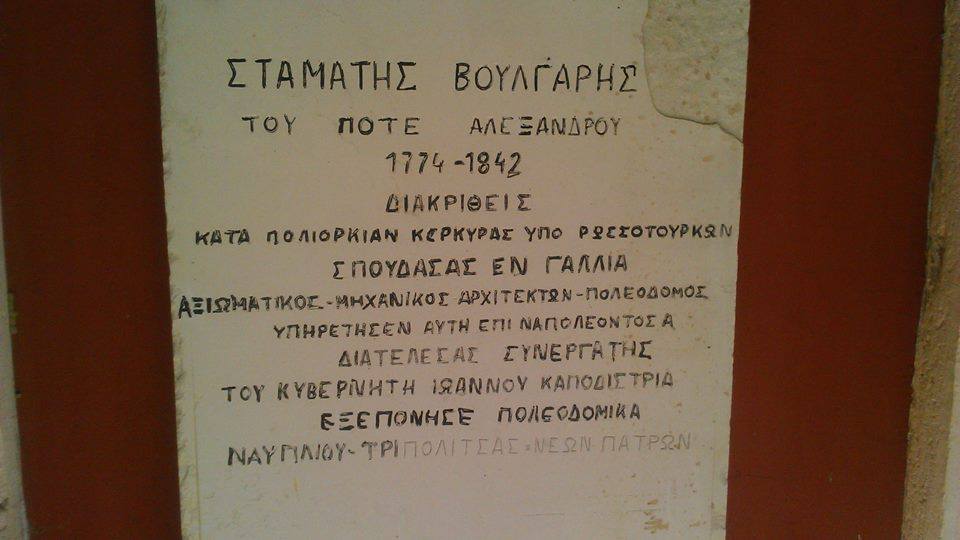 ΣΤΑΜΑΤΗΣ ΒΟΥΛΓΑΡΗΣ
ΤΟΥ ΠΟΤΕ ΑΛΕΞΑΝΔΡΟΥ
1774-1842
ΔΙΑΚΡΙΘΕΙΣ
ΚΑΤΑ ΠΟΛΙΟΡΚΙΑΝ ΚΕΡΚΥΡΑΣ ΥΠΟ ΡΩΣΣΟΤΟΥΡΚΩΝ
ΣΠΟΥΔΑΣΑΣ ΕΝ ΓΑΛΛΙΑ
ΑΞΙΩΜΑΤΙΚΟΣ-ΜΗΧΑΝΙΚΟΣ ΑΡΧΙΤΕΚΤΩΝ-ΠΟΛΕΟΔΟΜΟΣ
ΥΠΗΡΕΤΗΣΕΝ ΑΥΤΗ ΕΠΙ ΝΑΠΟΛΕΟΝΤΟΣ Α
ΔΙΑΤΕΛΕΣΑΣ ΣΥΝΕΡΓΑΤΗΣ
ΤΟΥ ΚΥΒΕΡΝΗΤΗ ΙΩΑΝΝΟΥ ΚΑΠΟΔΙΣΤΡΙΑ
ΕΞΕΠΟΝΗΣΕ ΠΟΛΕΟΔΟΜΙΚΑ
ΝΑΥΠΛΙΟΥ-ΤΡΙΠΟΛΙΤΣΑΣ-ΝΕΩΝ ΠΑΤΡΩΝ